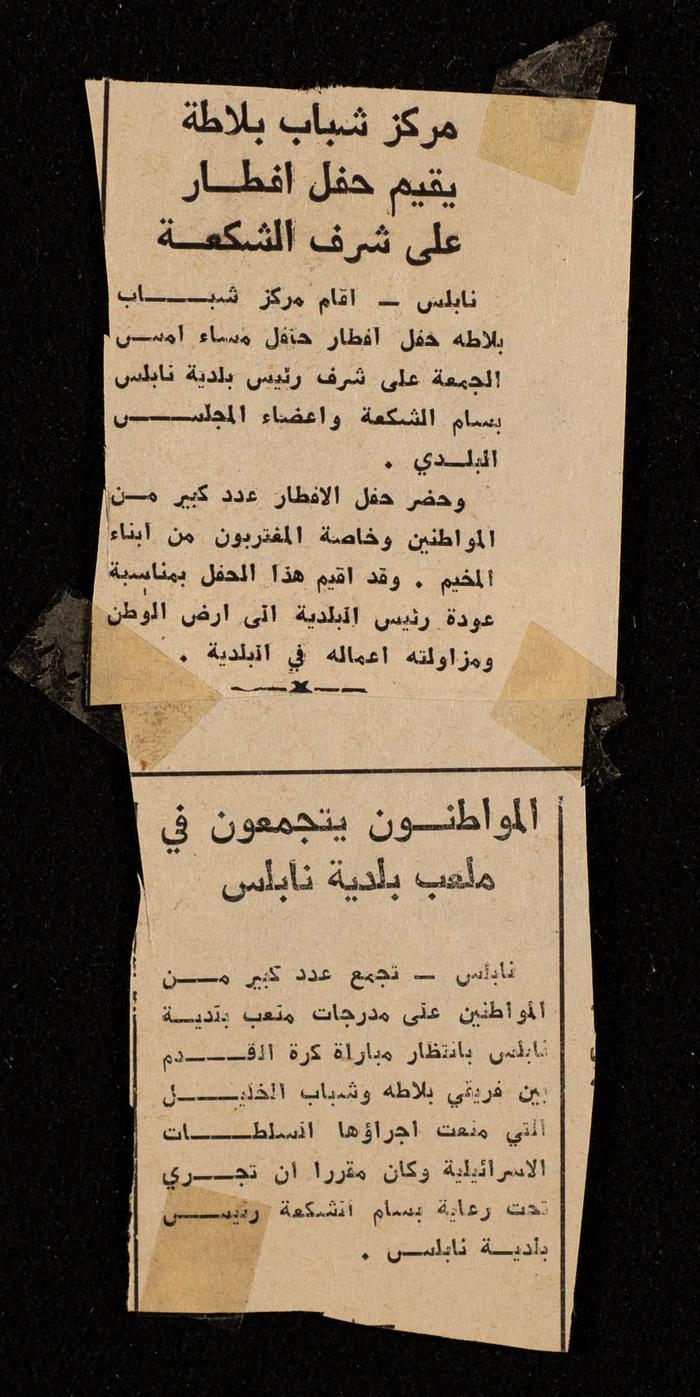 مركز شباب بلاطة
يقيم حفل افطــار
على شرف الشكعــة
نابلس ــ اقام مركز شبــــاب
بلاطه حفل افطار حافل مساء امســس
الجمعة على شرف رئيس بلدية نابلس
بسام الشكعة واعضاء المجلــــس
البلــدي .
وحضر حفل الافطار عدد كبير مــن
المواطنين وخاصة المغتربون من أبناء
المخيم . وقد اقيم هذا الحفل بمناسبة
عودة رئيس البلدية الى ارض الوطن
ومزاولته اعماله في البلدية .
ــــxــــ
المواطنــون يتجمعون في
ملعب بلدية نابلس
نابلس ــ تجمع عدد كبير مــــن
المواطنين على مدرجات ملعب بلديــة
نابلس بانتظار مباراة كرة القــــدم
بين فريقي بلاطه وشباب الخليــــل
التي منعت اجراؤها السلطــــات
الاسرائيلية وكان مقررا ان تجـــري
تحت رعاية بسام الشكعة رئيـــس
بلديــة نابلــس .